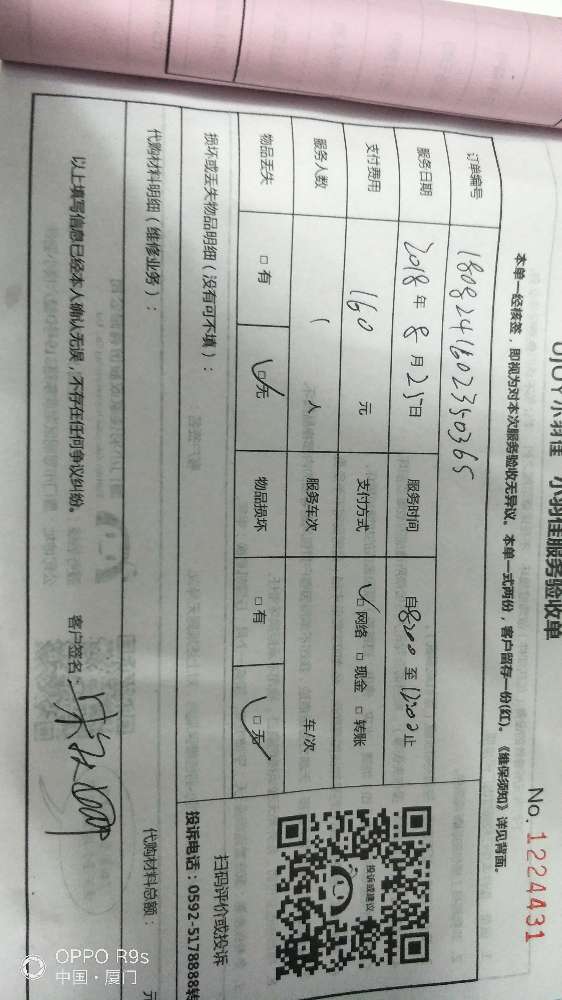 小羽佳 小羽佳服务验收单
No. 1224431
本单一经核签，即视为对本次服务验收无异议。本单一式两份，客户留存一份(红)。《维保须知》详见背面。
订单编号 1808241602350365
服务日期 2018年 8月 25日 服务时间 自8:00 至12:00止
支付费用 160 元 支付方式 □网络 □现金 □转账
服务人数 1 人 服务车次 车/次
物品丢失 □有 □无 物品损坏 □有 □无
损坏或丢失物品明细（没有可不填）：
代购材料明细（维修业务）：
代购材料总额： 元
投诉或建议
扫码评价或投诉
投诉电话：0592-5178888转
以上填写信息已经本人确认无误，不存在任何争议纠纷。 客户签名：
OPPO R9s
中国·厦门